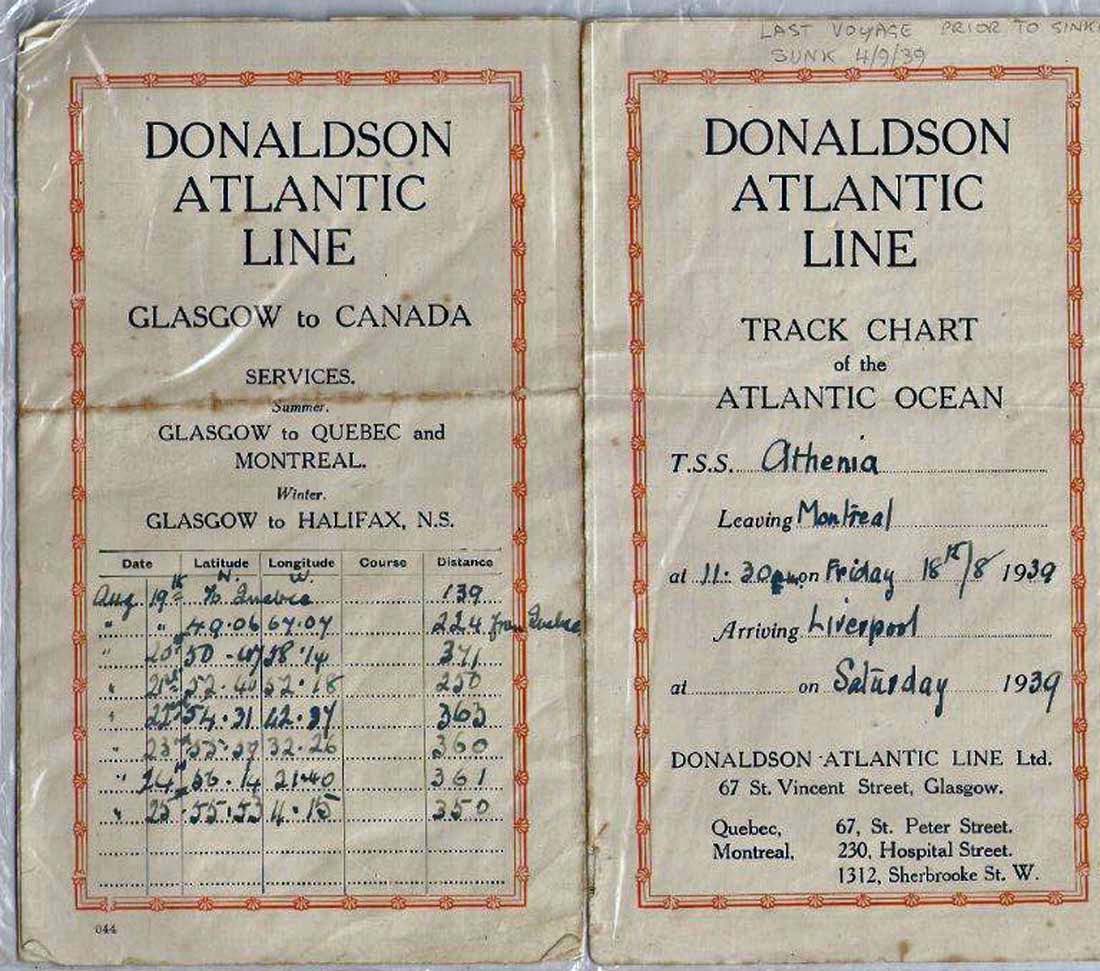 DONALDSON
ATLANTIC
LINE
GLASGOW to CANADA
SERVICES.
Summer.
GLASGOW to QUEBEC and
MONTREAL.
Winter.
GLASGOW to HALIFAX, N.S.
Date Latitude Longitude Course Distance
N. W.
Aug 19th To Quebec 139
" " 49.06 67.07 224 from Quebec
" 20th 50 58.14 371
" 21st 52.40 52.18 250
" 22nd 54.31 42.37 363
" 23rd 32.26 360
" 24th 56.14 21.40 361
" 25 55.53 11.15 350
044
LAST VOYAGE PRIOR TO SINK
SUNK 4/9/39
DONALDSON
ATLANTIC
LINE
TRACK CHART
of the
ATLANTIC OCEAN
T.S.S. Athenia
Leaving Montreal
at 11.30 on Friday 18th/8 1939
Arriving Liverpool
at on Saturday 1939
DONALDSON ATLANTIC LINE Ltd.
67 St. Vincent Street, Glasgow.
Quebec, 67, St. Peter Street.
Montreal, 230, Hospital Street.
1312, Sherbrooke St. W.